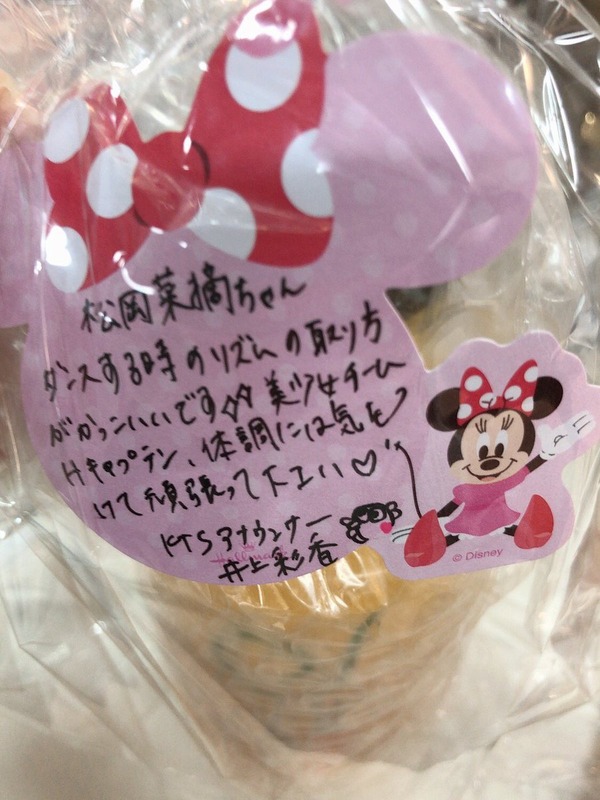 松岡菜摘ちゃん
ダンスする時のリズムの取り方
がかっこいいです 美少女チーム
Hキャプテン、体調には気を
つけて頑張って下さい♡
KTSアナウンサー
井上彩香
Hallmark
© Disney